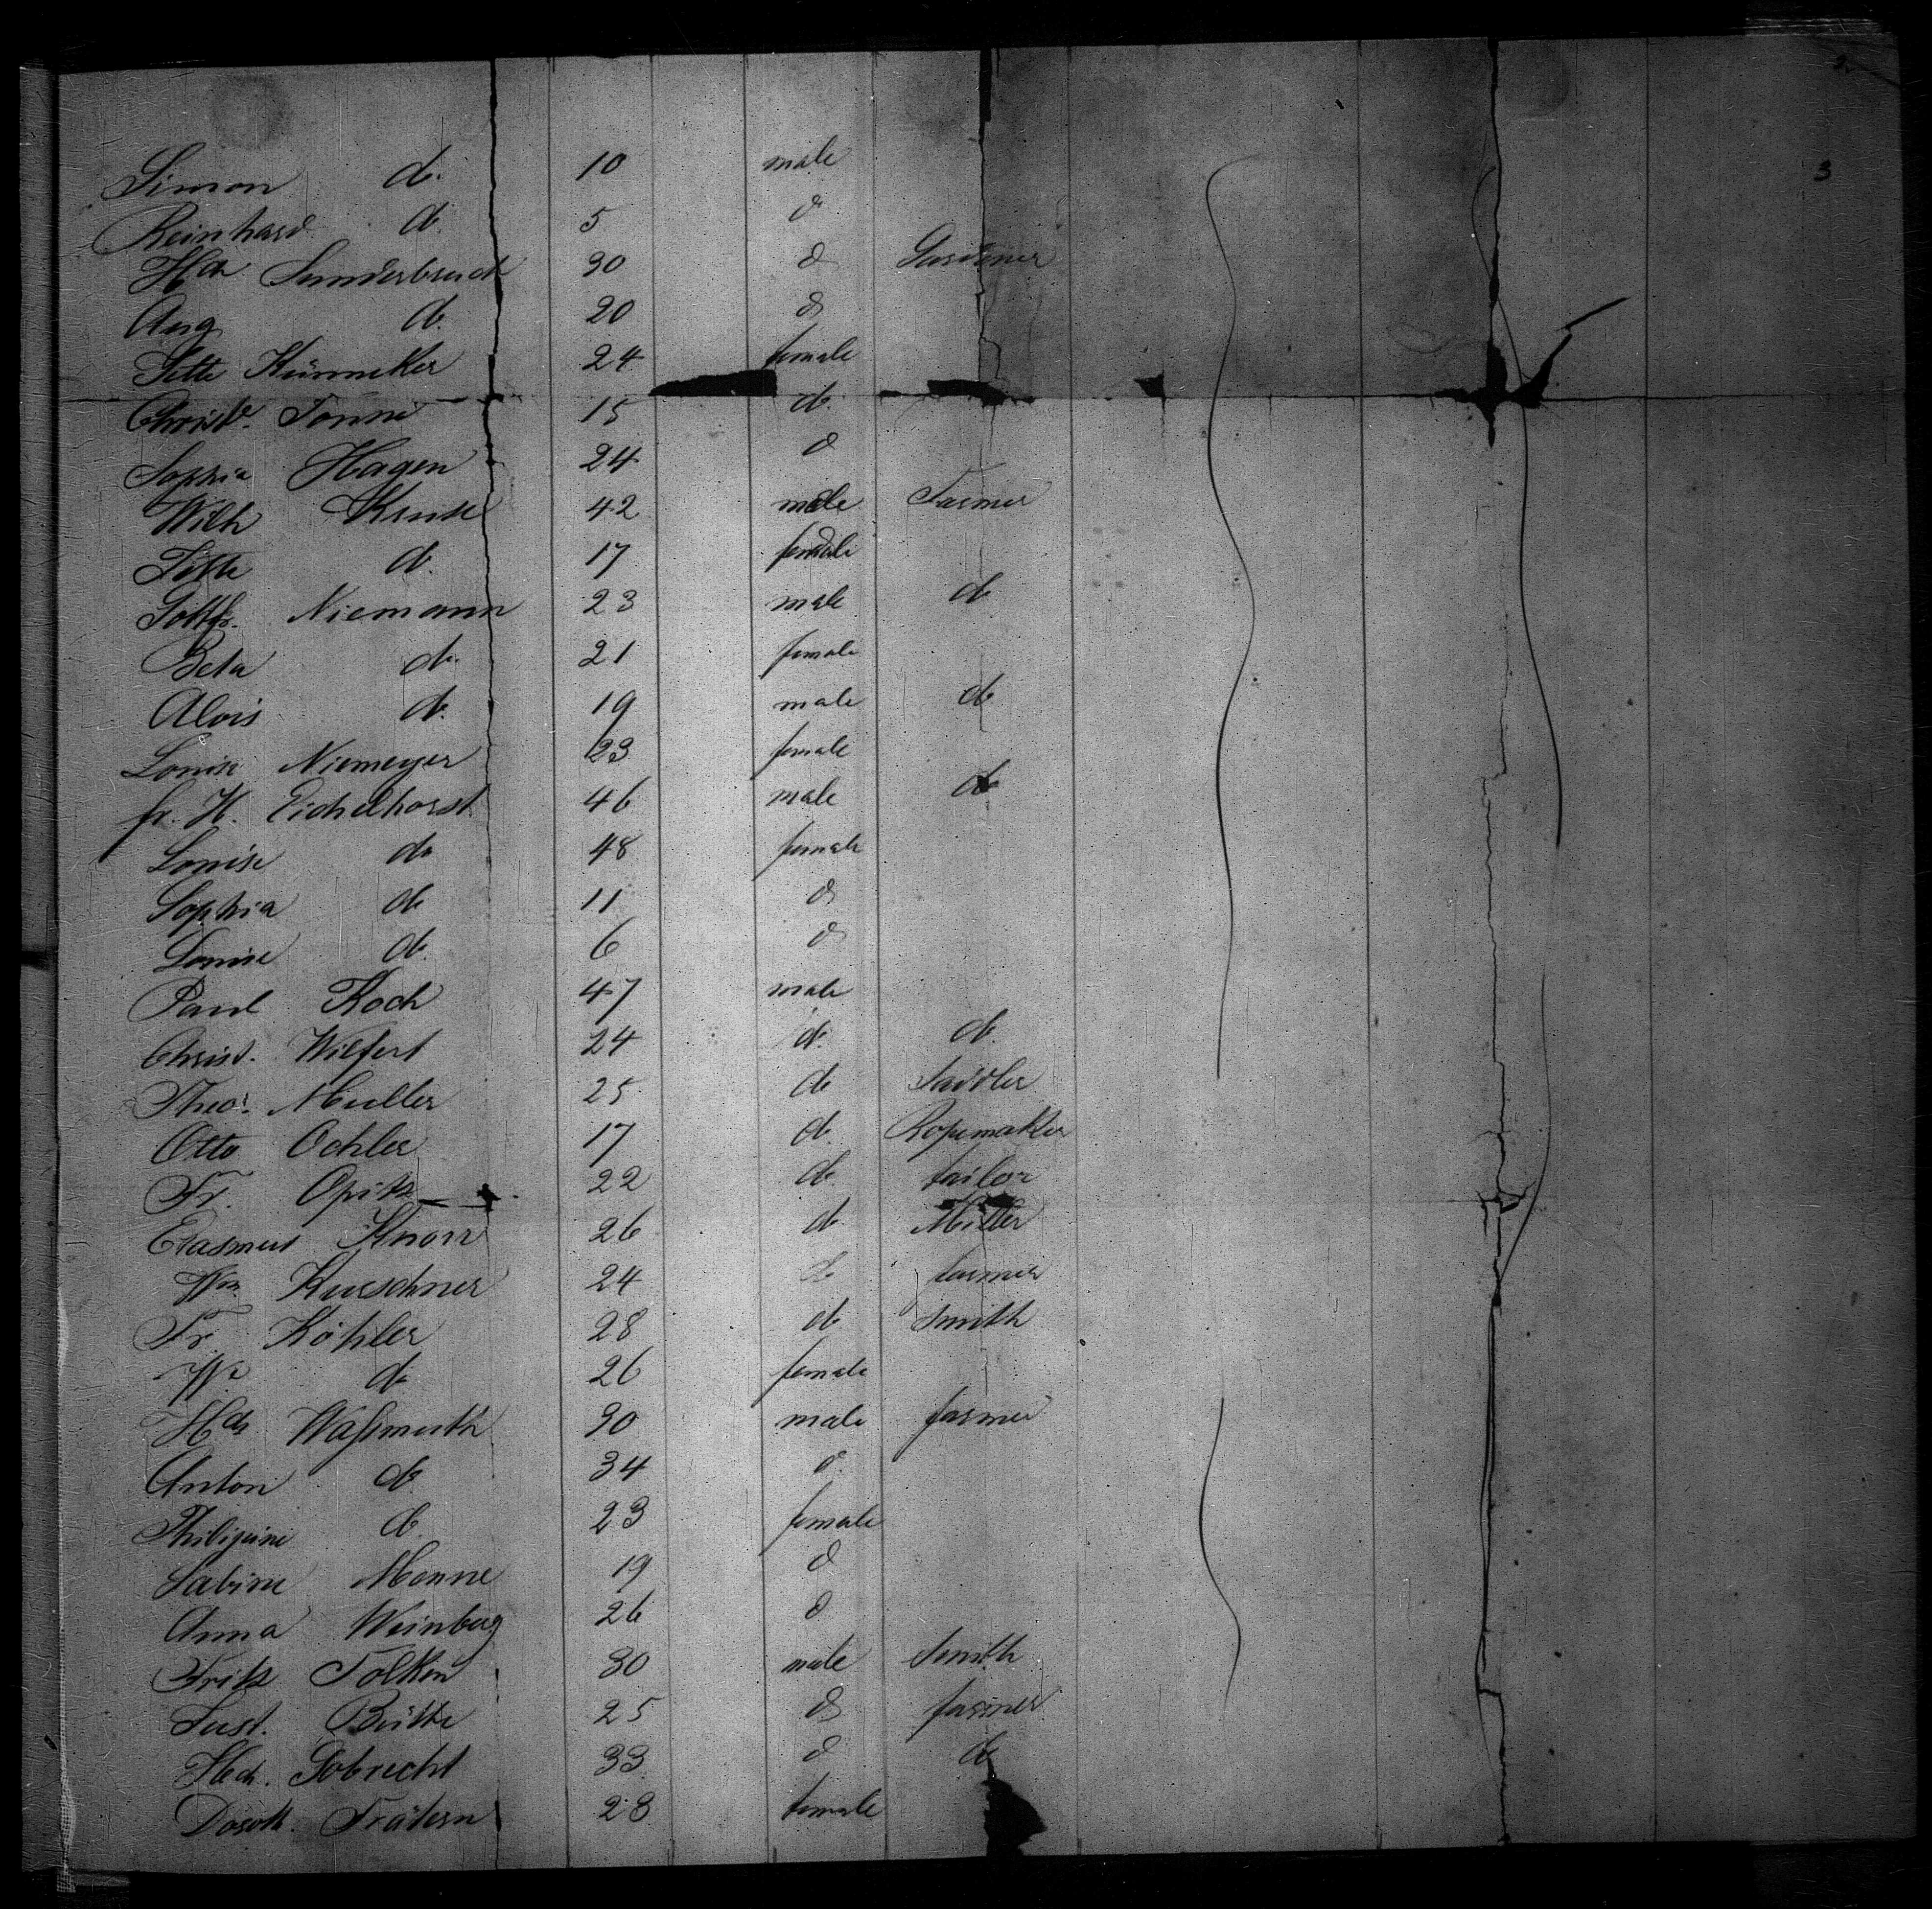 3
Simon do. 10 male
Reinhard do. 5 do
Hch Sunderbruch 30 do Gardener
Aug do. 20 do
Jette Künneker 24 female
Christe. Tonne 15 do.
Sophia Hagen 24 do
Wilh Kruse 42 male Farmer
Jette do. 17 female
Gottfr. Niemann 23 male do
Beta do. 21 female
Alois do. 19 male do
Louise Niemeyer 23 female
Fr. H. Eichelhorst 46 male do
Louise do 48 female
Sophia do 11 do
Louise do. 6 do
Paul Koch 47 male
Christ. Wilfert 24 do. do.
Theod. Muller 25 do Saddler
Otto Oehler 17 do. Ropemaker
Fr. Opitz 22 do tailor
Erasmus Knorr 26 do Miller
Wm Kurschner 24 do farmer
Fr. Köhler 28 do smith
We do 26 female
Hch Waßmuth 30 male farmer
Anton do 34 do.
Philipine do. 23 female
Sabine Monne 19 do
Anna Weinberg 26 do
Fritz Tolken 30 male Smith
Just. Bütte 25 do farmer
Hch. Gobrecht 33 do do
Doroth. Frätern 28 female